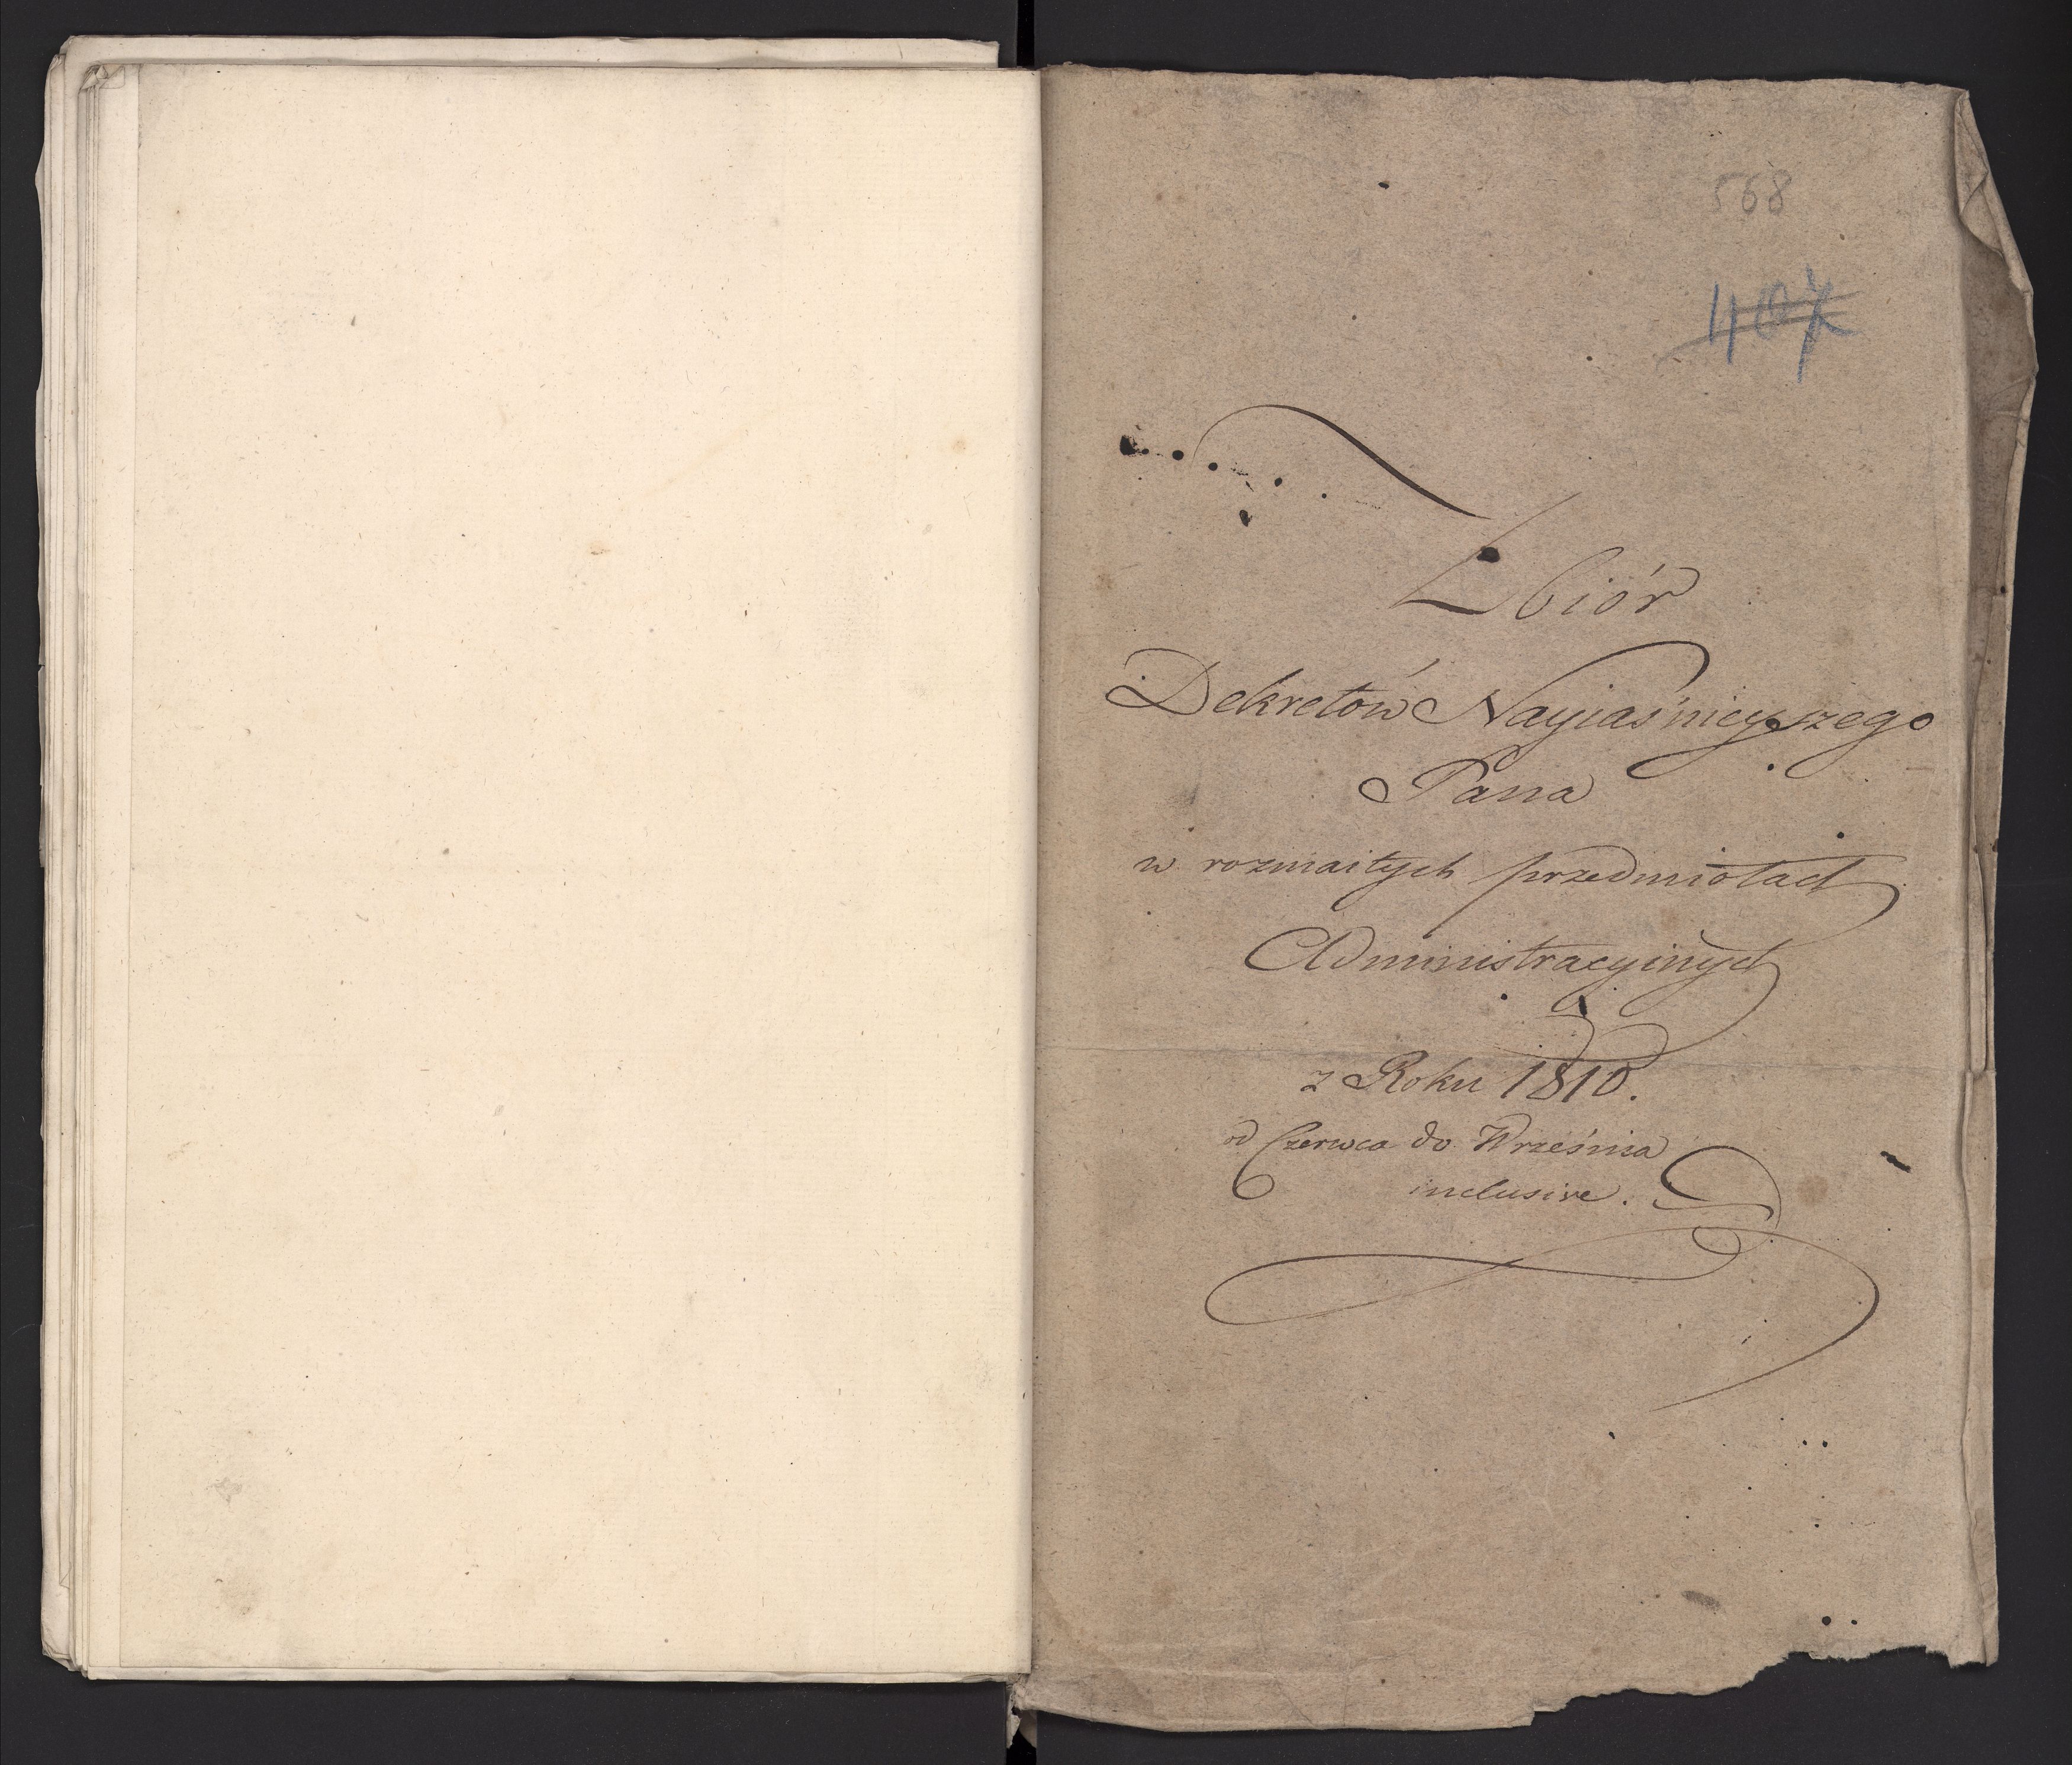 568
407
Zbiór
Dekretów Nayiaśnieyszego
Pana
w rozmaitych przedmiotach
Administracyinych
z Roku 1810.
od Czerwca do Września
inclusive.